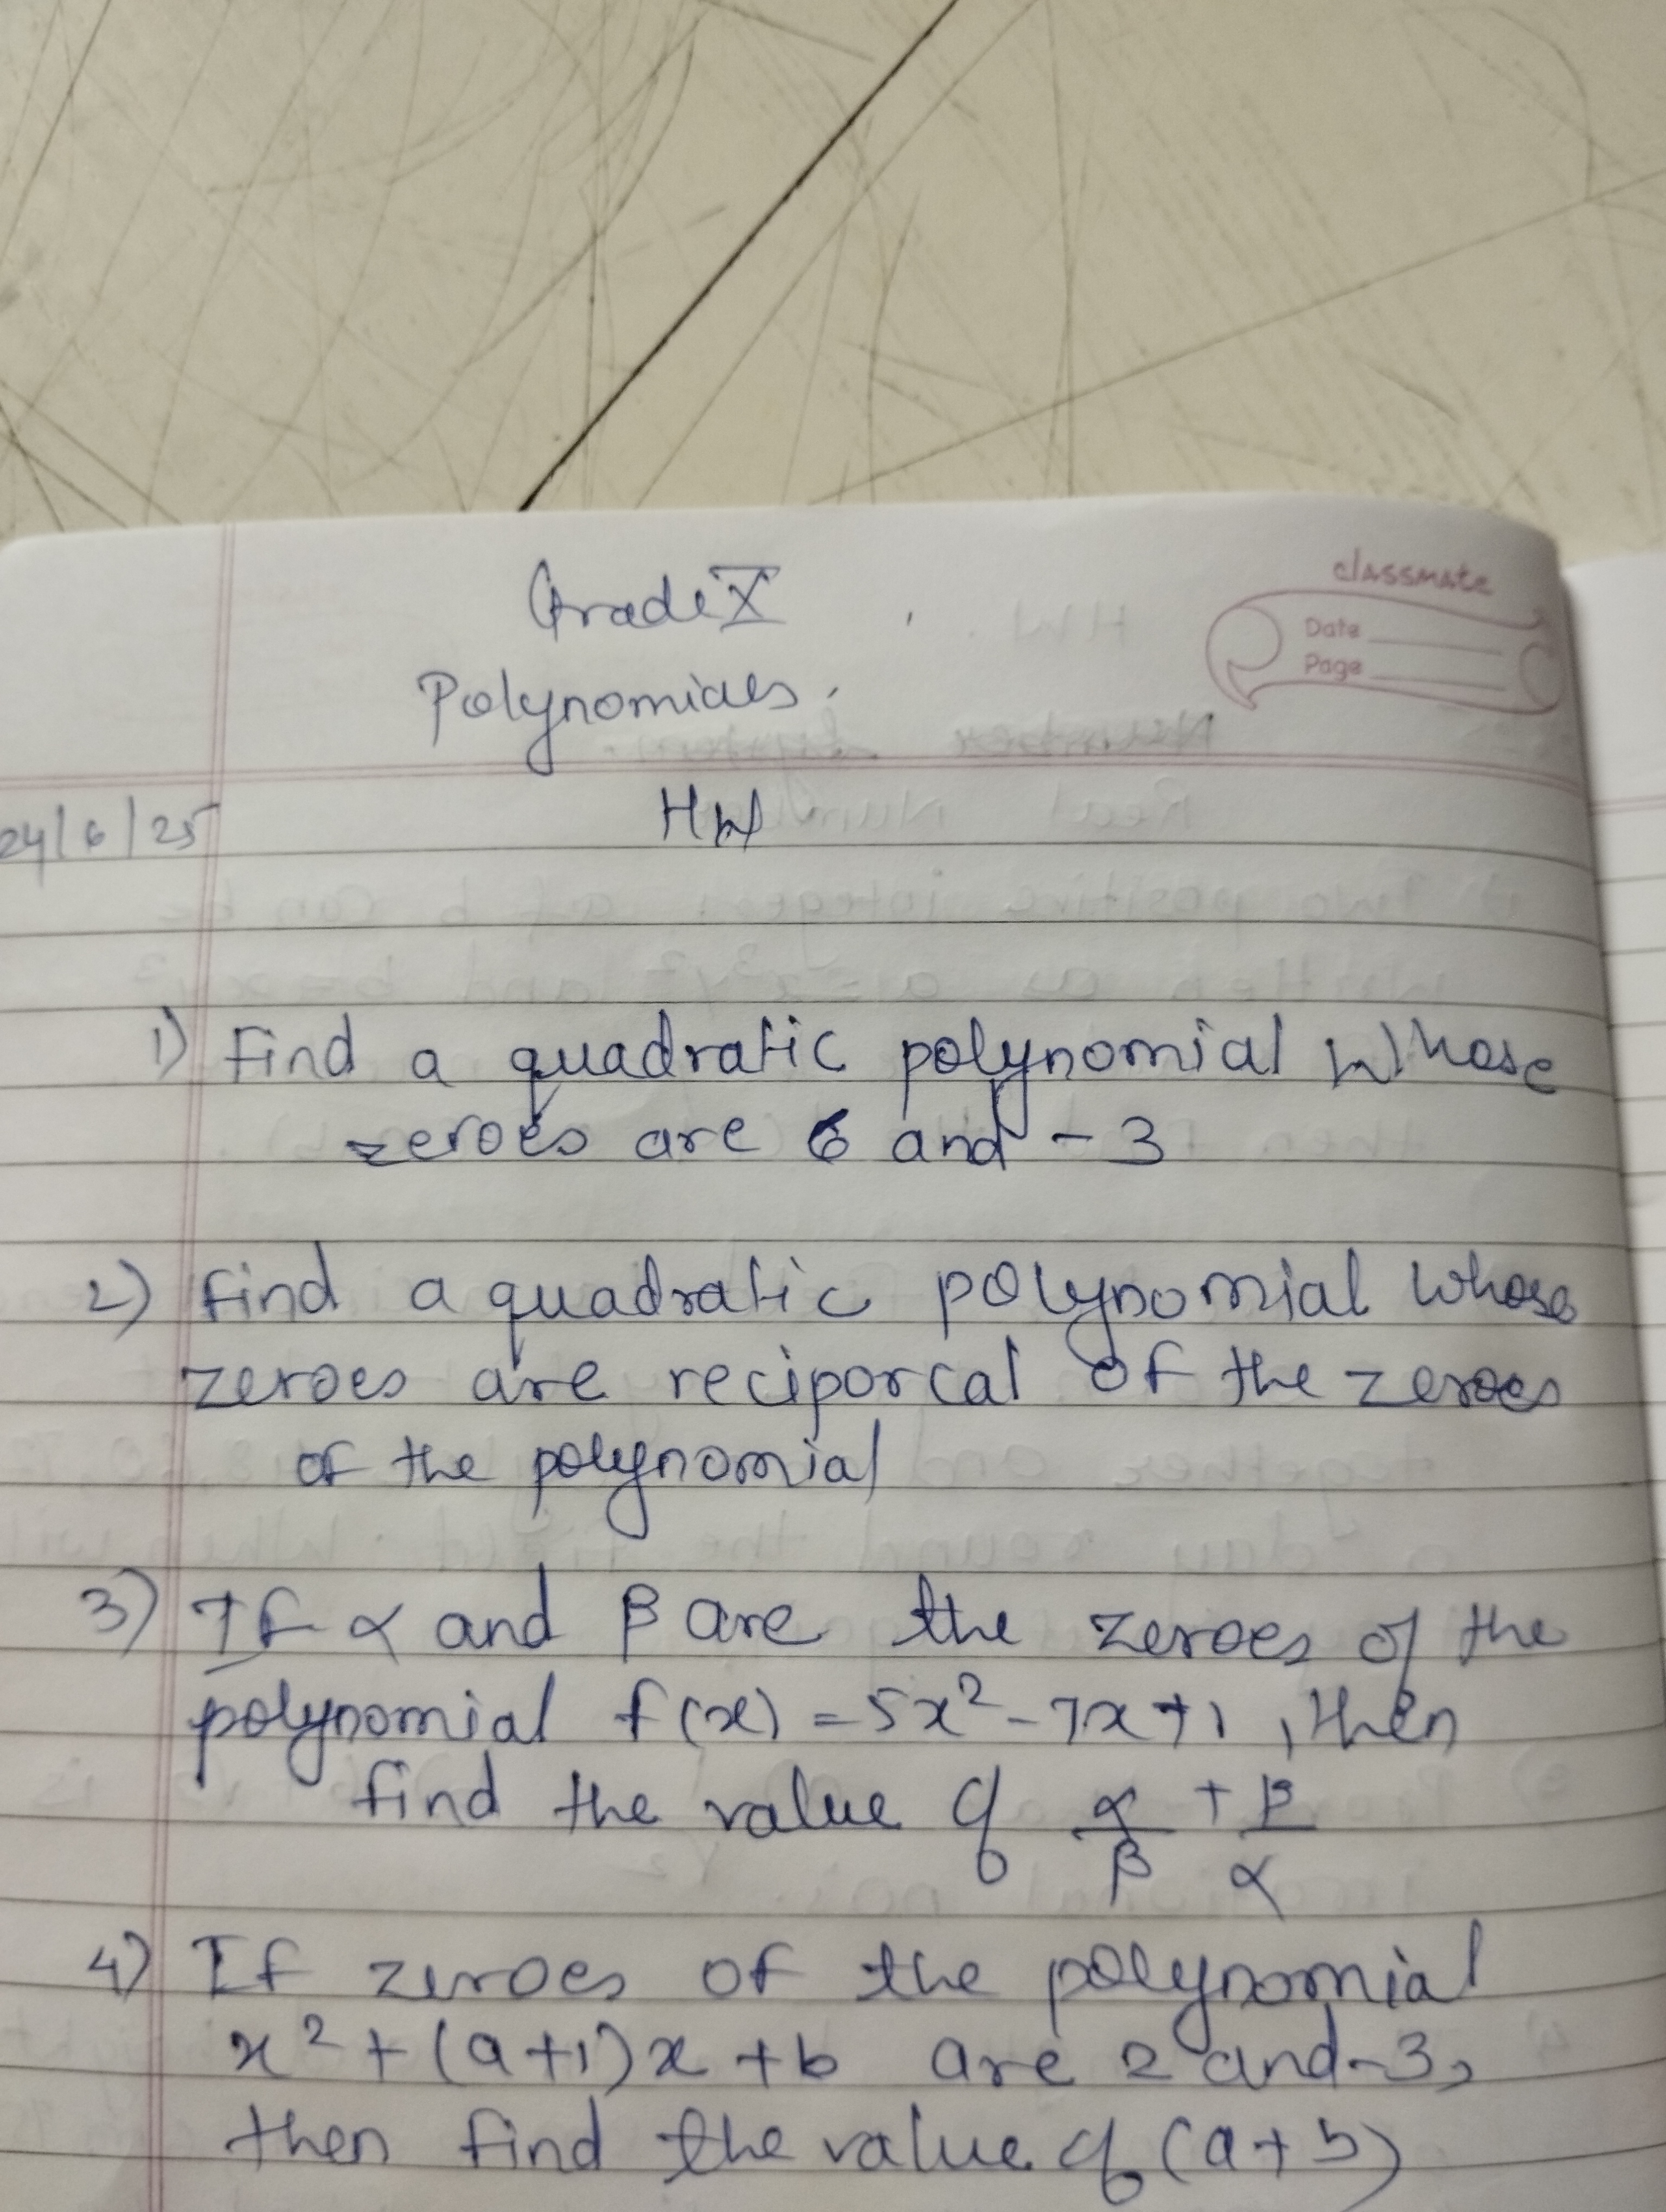 Grade X
classmate
Date
Page
Polynomials.
24/6/25
HW
1) Find a quadratic polynomial whose
zeroes are 6 and -3
2) Find a quadratic polynomial whose
zeroes are reciporcal of the zeroes
of the polynomial
3) If α and β are the zeroes of the
polynomial f(x) = 5x² - 7x + 1, then
find the value of α/β + β/α
4) If zeroes of the polynomial
x² + (a+1)x + b are 2 and -3,
then find the value of (a+b)